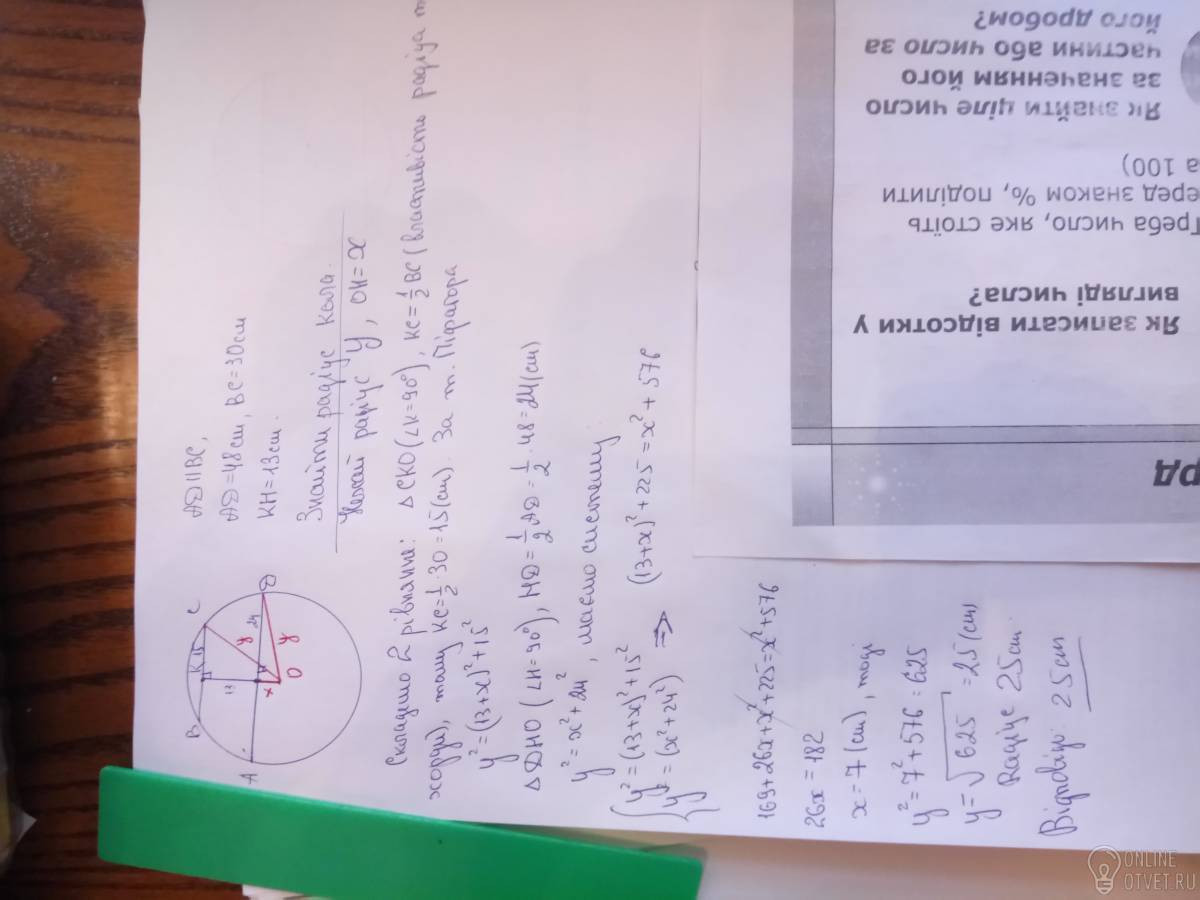 AD||BC,
AD=48см, BC=30см
KH=13см.
Знайти радіус кола.
Нехай радіус y, OH=x
B
K
15
C
13
y
A
H
24
D
x
y
O
Складемо 2 рівняння: △CKO (∠K=90°), KC=1/2 BC (властивість радіуса
хорди), тому KC=1/2·30=15(см). За т. Піфагора
y²=(13+x)²+15²
△DHO (∠H=90°), HD=1/2 AD=1/2·48=24(см)
y²=x²+24², маємо систему
{y²=(13+x)²+15²
{y²=(x²+24²) => (13+x)²+225=x²+576
169+26x+x²+225=x²+576
26x=182
x=7(см), тоді
y²=7²+576=625
y=√625=25(см)
Радіус 25см.
Відповідь: 25см
рд
Як записати відсотки у
вигляді числа?
Треба число, яке стоїть
еред знаком %, поділити
а 100)
Як знайти ціле число
за значенням його
частини або число за
його дробом?
ONLINE
OTVET.RU